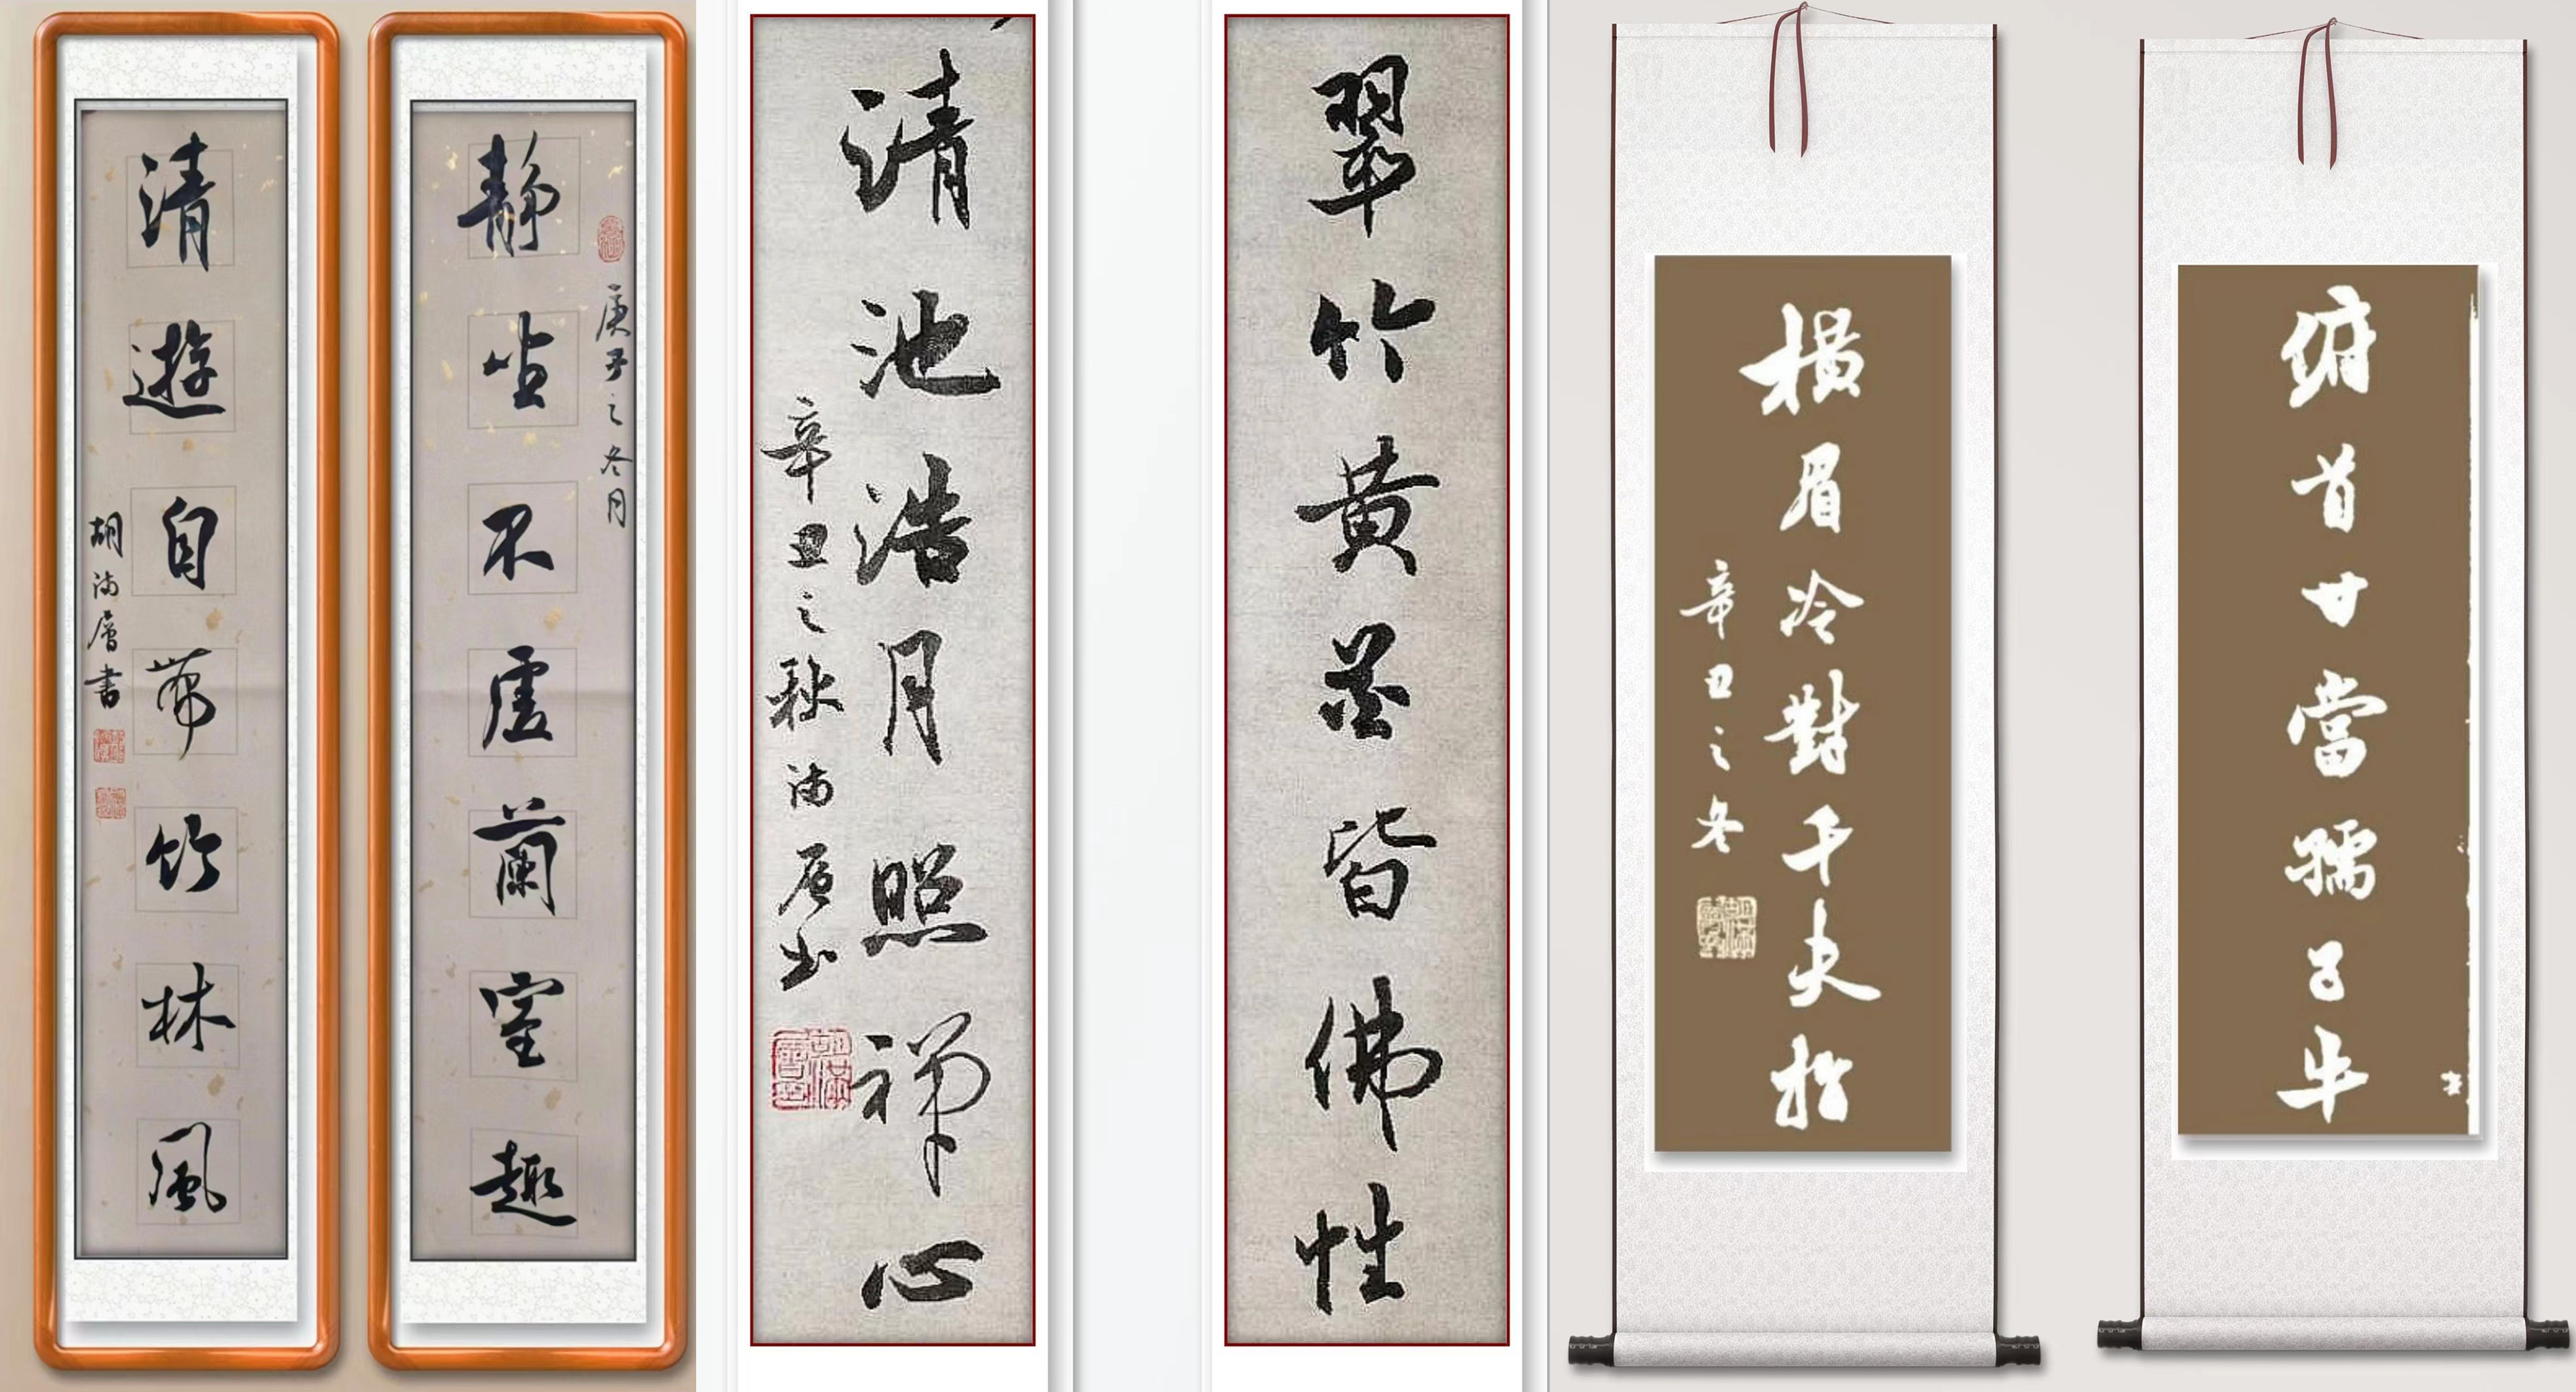 庚子之冬月
静坐不虚蘭室趣
清遊自帶竹林風
胡满層書
翠竹黄花皆佛性
清池浩月照禅心
辛丑之秋满层书
横眉冷對千夫指
辛丑之冬
俯首甘當孺子牛